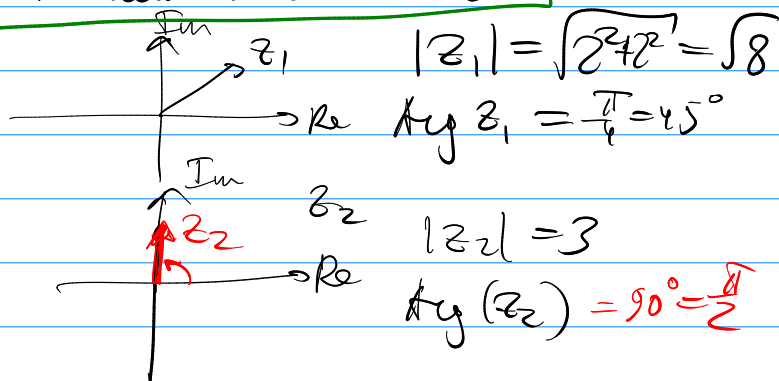 Im
Z₁ |Z₁| = √(2²+2²) = √8
Re Arg Z₁ = π/4 = 45°
Im
Z₂ Z₂ |Z₂| = 3
Re Arg (Z₂) = 90° = π/2